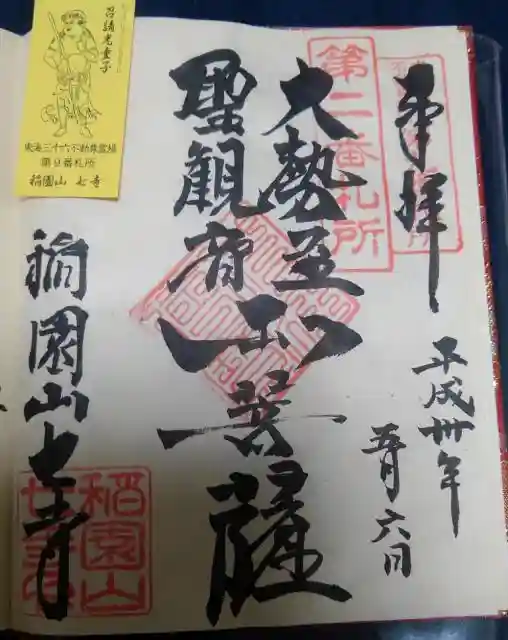 奉拝
平成卅年
五月六日
第二番札所
大勢至
聖観音
両菩薩
稲園山七寺
稲園山
七寺
呂請光童子
東海三十六不動尊霊場
第9番札所
稲園山 七寺